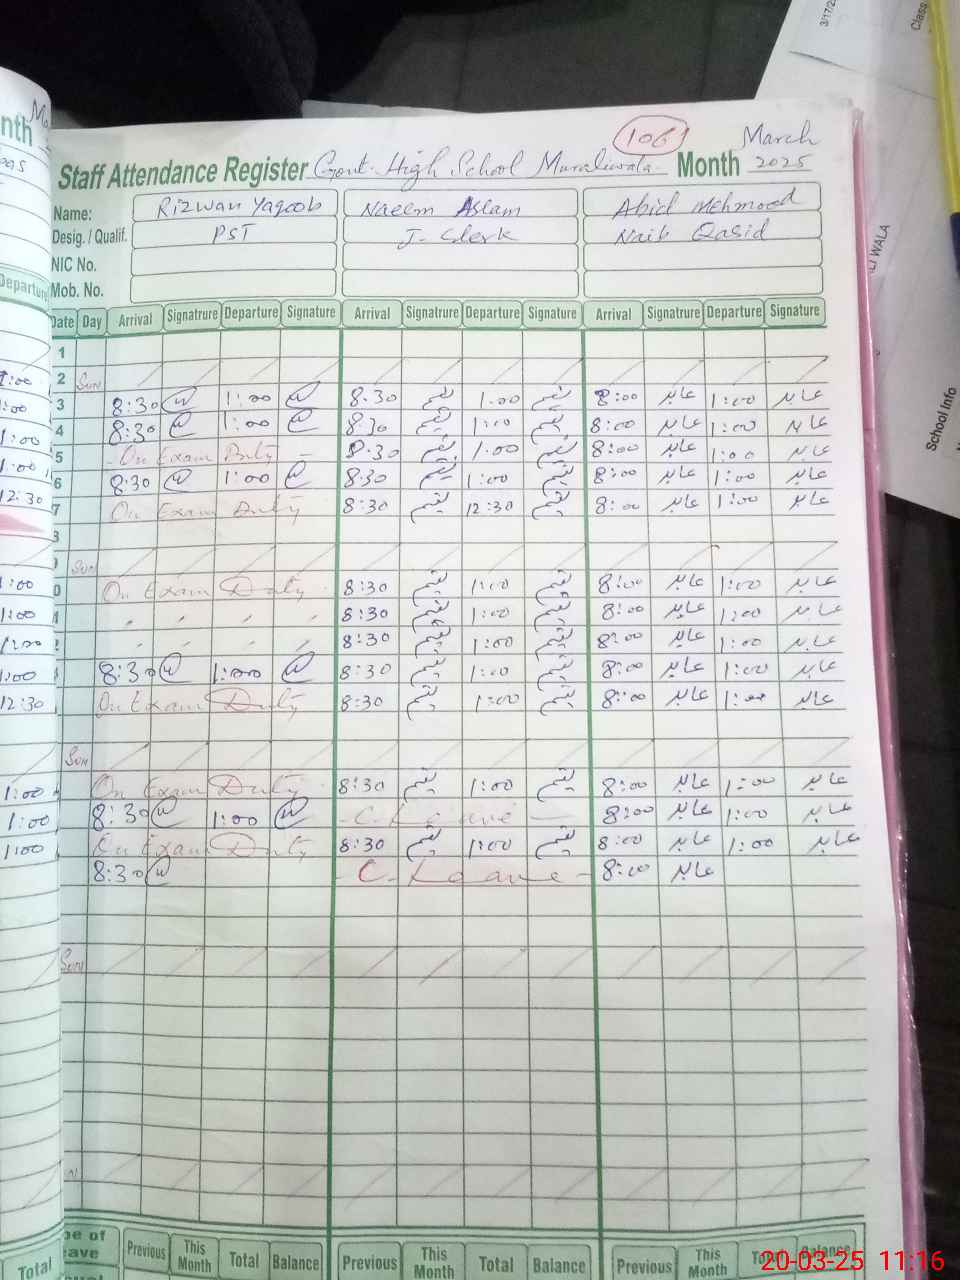 106
March
Staff Attendance Register Govt. High School Muraliwala Month 2025
Name: Rizwan Yaqoob Naeem Aslam Abid Mehmood
Desig. / Qualif. PST J-Clerk Naib Qasid
NIC No.
Mob. No.
Date Day Arrival Signatrure Departure Signature Arrival Signatrure Departure Signature Arrival Signatrure Departure Signature
1
2 Sun
3 8:30 1:00 8:30 1:00 8:00 عابد 1:00 عابد
4 8:30 1:00 8:30 1:00 8:00 عابد 1:00 عابد
5 On Exam Duty 8:30 1:00 8:00 عابد 1:00 عابد
6 8:30 1:00 8:30 1:00 8:00 عابد 1:00 عابد
7 On Exam Duty 8:30 12:30 8:00 عابد 1:00 عابد
Sun
On Exam Duty 8:30 1:00 8:00 عابد 1:00 عابد
8:30 1:00 8:00 عابد 1:00 عابد
8:30 1:00 8:00 عابد 1:00 عابد
8:30 1:00 8:30 1:00 8:00 عابد 1:00 عابد
On Exam Duty 8:30 1:00 8:00 عابد 1:00 عابد
Sun
On Exam Duty 8:30 1:00 8:00 عابد 1:00 عابد
8:30 1:00 C. Leave 8:00 عابد 1:00 عابد
On Exam Duty 8:30 1:00 8:00 عابد 1:00 عابد
8:30 C. Leave 8:00 عابد
Sun
Previous This Month Total Balance Previous This Month Total Balance Previous This Month Total Balance
Total
School Info
20-03-25 11:16